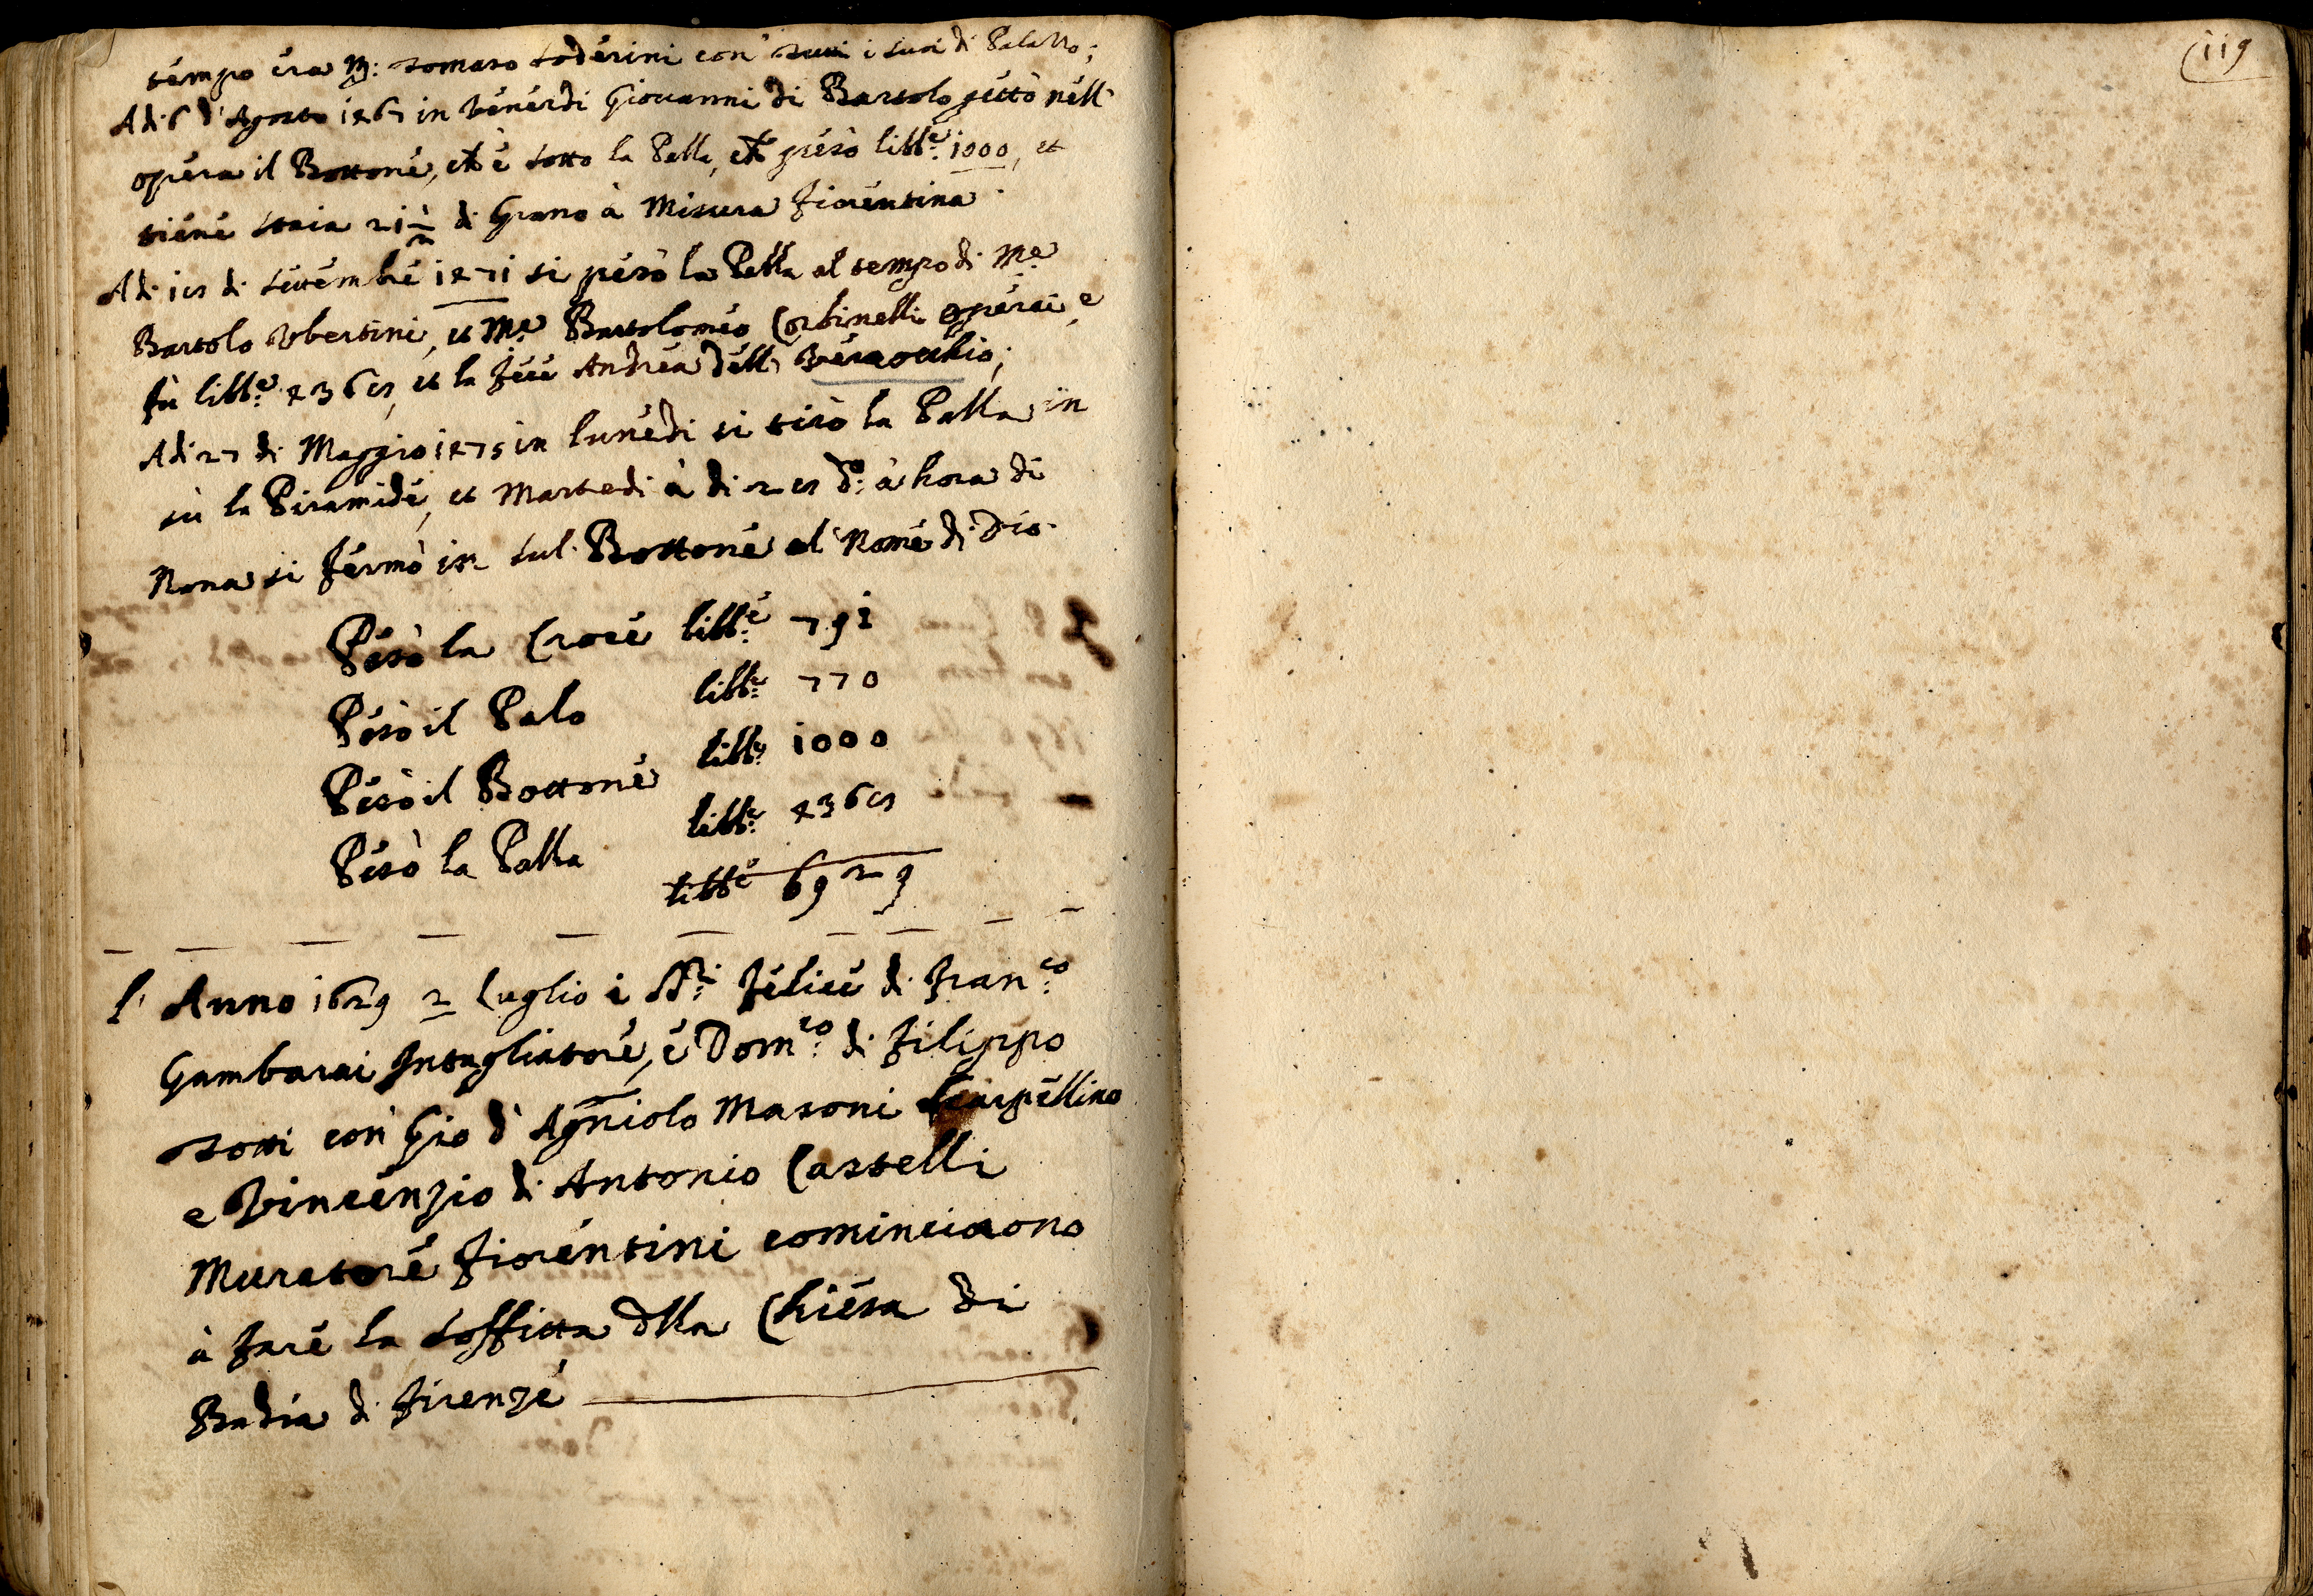 tempo era M: Tomaso Soderini con' tutti i suoi di Palazzo;
Adi 6 d'Agosto 1467 in Venerdi Giovanni di Bartolo gittò nell'
opera il Bottone, ch' è sotto la Palla, ch' pesò libb.e 1000, et
tiene staia 21 1/2 di Grano à Misura Fiorentina.
Adi 18 di Settembre 1471 si pesò la Palla al tempo di M.e
Bartolo Ubertini, et M.e Bartolomeo Corbinelli Operai, e
fù libb.e 4368, et la fece Andrea dell Verrocchio;
Adi 27 di Maggio 1475 in lunedi si tirò la Palla in
sù la Piramide, et Martedi à di 28 d.o à hora di
Nona si fermò in sul Bottone al Nome di Dio.
Pesò la Croce libb.e 791
Pesò il Palo libb.e 770
Pesò il Bottone libb.e 1000
Pesò la Palla libb.e 4368
libb.e 6929
l' Anno 1629 2 Luglio i SS.ri Felice di Fran.co
Gambarai Intagliatore, e Dom.co di Filippo
Totti con Gio d' Agniolo Masoni Scarpellino
e Vincenzio di Antonio Castelli
Muratore Fiorentini cominciaono
à fare la soffitta dlla Chiesa di
Badia di Firenze
119